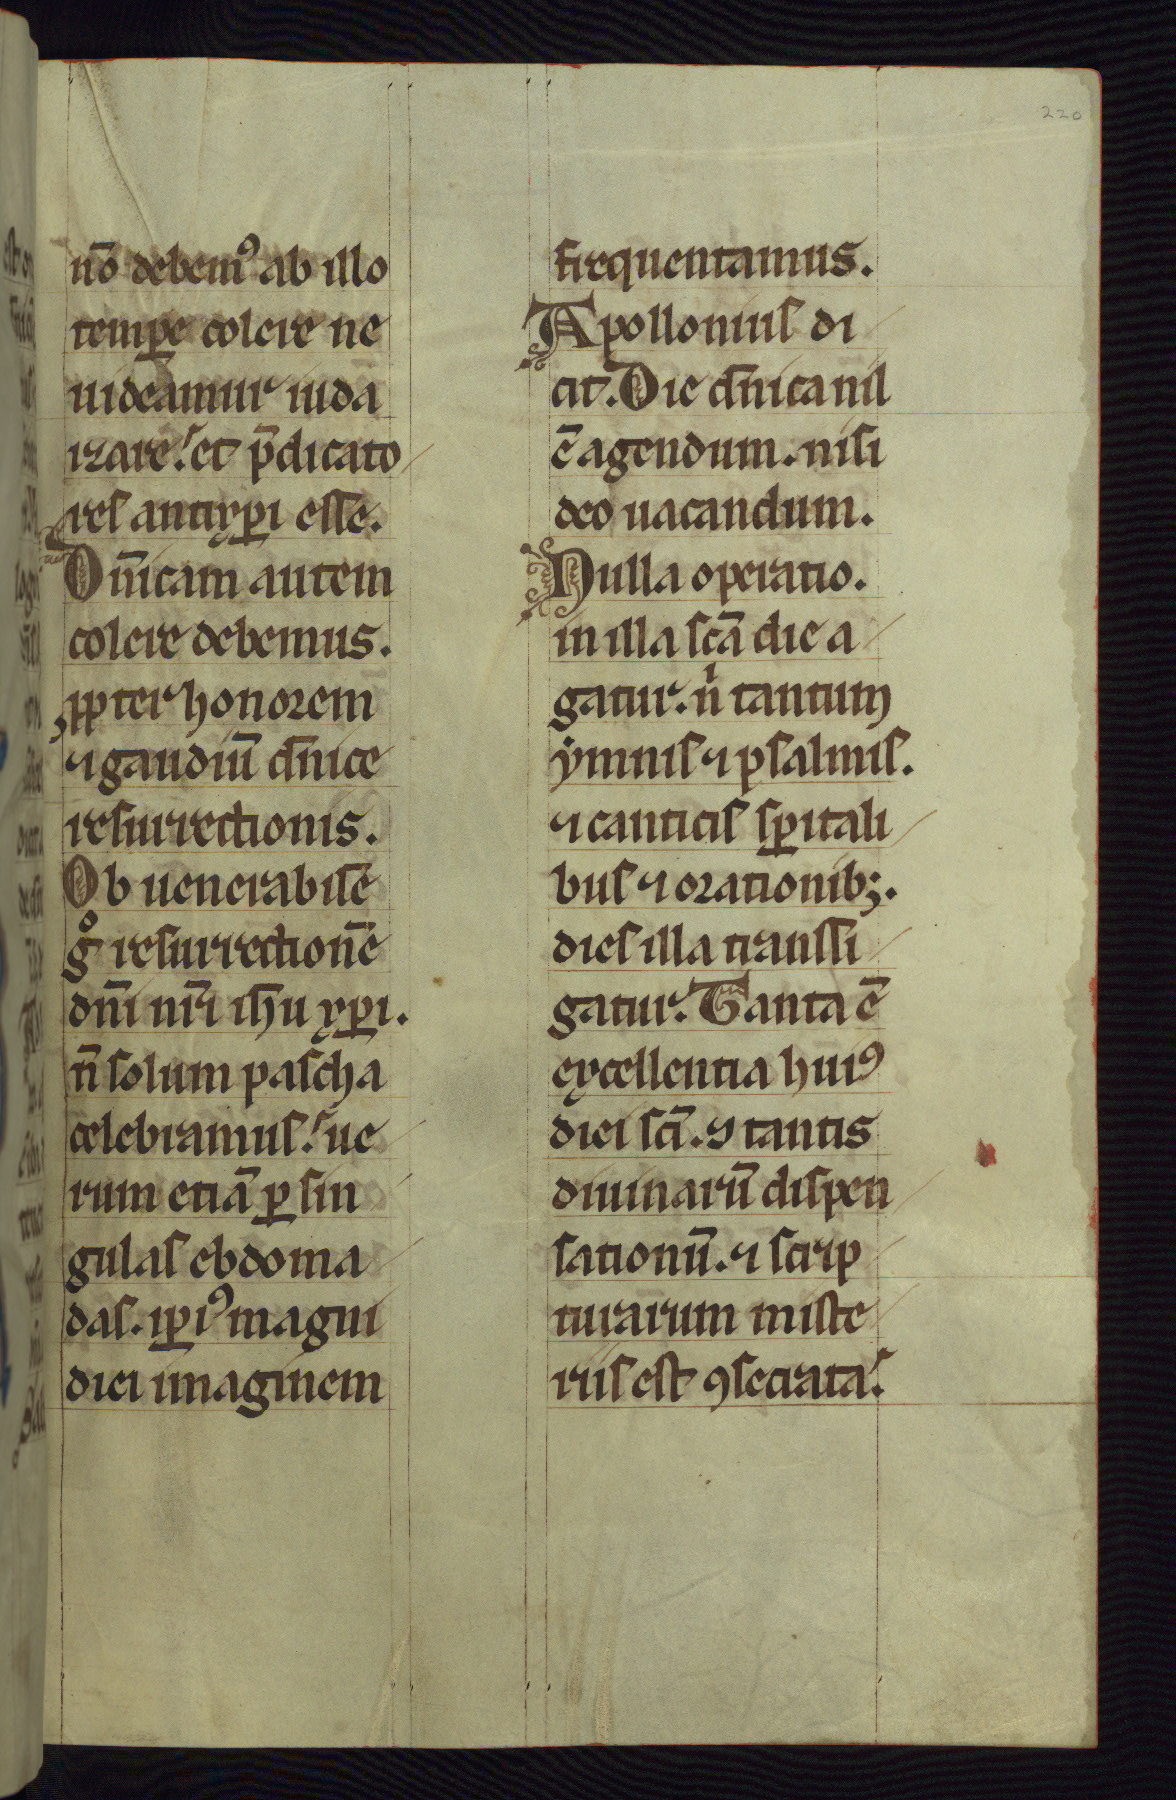 220
nō debemꝰ ab illo
temꝑe colere ne
uideamur iuda
izare. et p̄dicato
res antixp̄i esse.
Dn̄icam autem
colere debemus.
ꝓpter honorem
⁊ gaudiū dn̄ice
resurrectionis.
Ob uenerabilē
gͦ resurrectionē
dn̄i nr̄i ih̄u xp̄i.
n̄ solum pascha
celebramus. ue
rum etiā ꝑ sin
gulas ebdoma
das. ip̄iꝰ magni
diei imaginem
frequentamus.
Apollonius di
cit. Die dn̄ica nil
ē agendum. nisi
deo uacandum.
Nulla operatio.
in illa sc̄a die a
gatur. nͥ tantum
ẏmnis ⁊ psalmis.
⁊ canticis sp̄itali
bus ⁊ orationibꝫ.
dies illa transsi
gatur. Tanta ē
excellentia huiꝰ
diei sc̄i. ꝯ tantis
diuinarū dispen
sationū. ⁊ scrip
turarum miste
riis est ꝯsecrata.